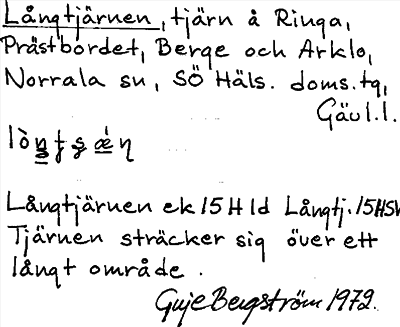 Långtjärnen, tjärn å Ringa,
Prästbordet, Berge och Arklo,
Norrala sn, SÖ Häls. doms.tg,
Gävl.l.
Långtjärnen ek 15H 1d Långtj. 15HSV
Tjärnen sträcker sig över ett
långt område.
Guje Bergström 1972.